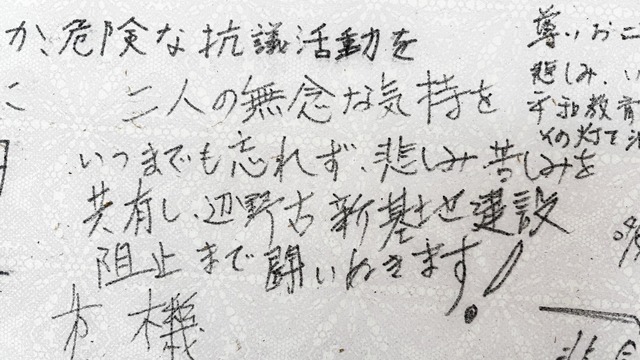 か、危険な抗議活動を
二人の無念な気持を
いつまでも忘れず、悲しみ苦しみを
共有し、辺野古新基地建設
阻止まで闘いぬきます!
市 機
尊いお二
悲しみ、い
平和教育
その灯を